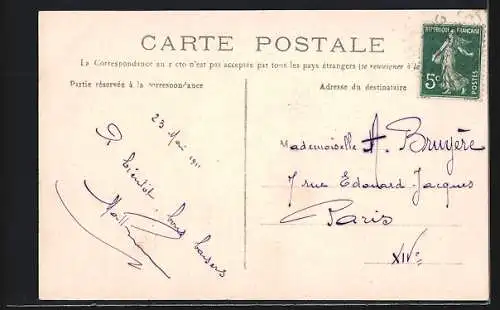 CARTE POSTALE
La Correspondance au recto n'est pas acceptée par tous les pays étrangers (se renseigner à la
Partie réservée à la correspondance
Adresse du destinataire
REPUBLIQUE FRANÇAISE
5c
POSTES
23 Mai 1911
A bientôt, bons baisers
Mademoiselle A. Bruyère
7 rue Edouard-Jacques
Paris
XIVe